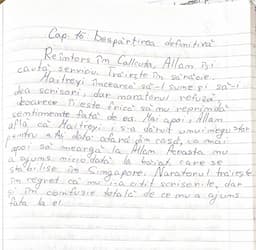 Cap 15 Despărțirea definitivă
Reîntors în Calcutta, Allan își
caută serviciu. Trăiește în sărăcie.
Maitreyi încearcă să-l sune și să-i
dea scrisori, dar naratorul refuză
deoarece îi este frică să nu reprimidă
sentimentele față de ea. Mai apoi, Allan
află că Maitreyi, s-a dăruit unui negustor
pentru a fi dată afară din casă, ca mai
apoi să meargă la Allan. Aceasta nu
a ajuns niciodată la băiat care se
stabilise în Singapore. Naratorul trăiește
în regret că nu i-a citit scrisorile, dar
și în confuzie totală de ce nu a ajuns
fata la el.